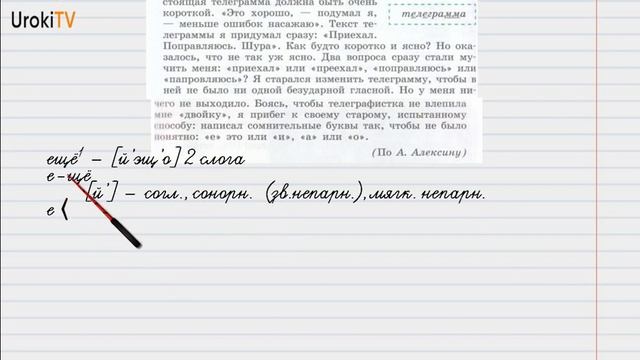 UrokiTV
стоящая телеграмма должна быть очень
короткой. «Это хорошо, — подумал я,
— меньше ошибок насажаю». Текст те-
леграммы я придумал сразу: «Приехал.
Поправляюсь. Шура». Как будто коротко и ясно? Но ока-
залось, что не так уж ясно. Два вопроса сразу стали му-
чить меня: «приехал» или «преехал», «поправляюсь» или
«папровляюсь»? Я старался изменить телеграмму, чтобы в
ней не было ни одной безударной гласной. Но у меня ни-
чего не выходило. Боясь, чтобы телеграфистка не влепила
мне «двойку», я прибег к своему старому, испытанному
способу: написал сомнительные буквы так, чтобы не было
понятно: «е» это или «и», «а» или «о».
(По А. Алексину)
телеграмма
ещё¹ – [й'эщ'о] 2 слога
е-щё
[й'] – согл., сонорн. (зв.непарн.), мягк. непарн.
е <